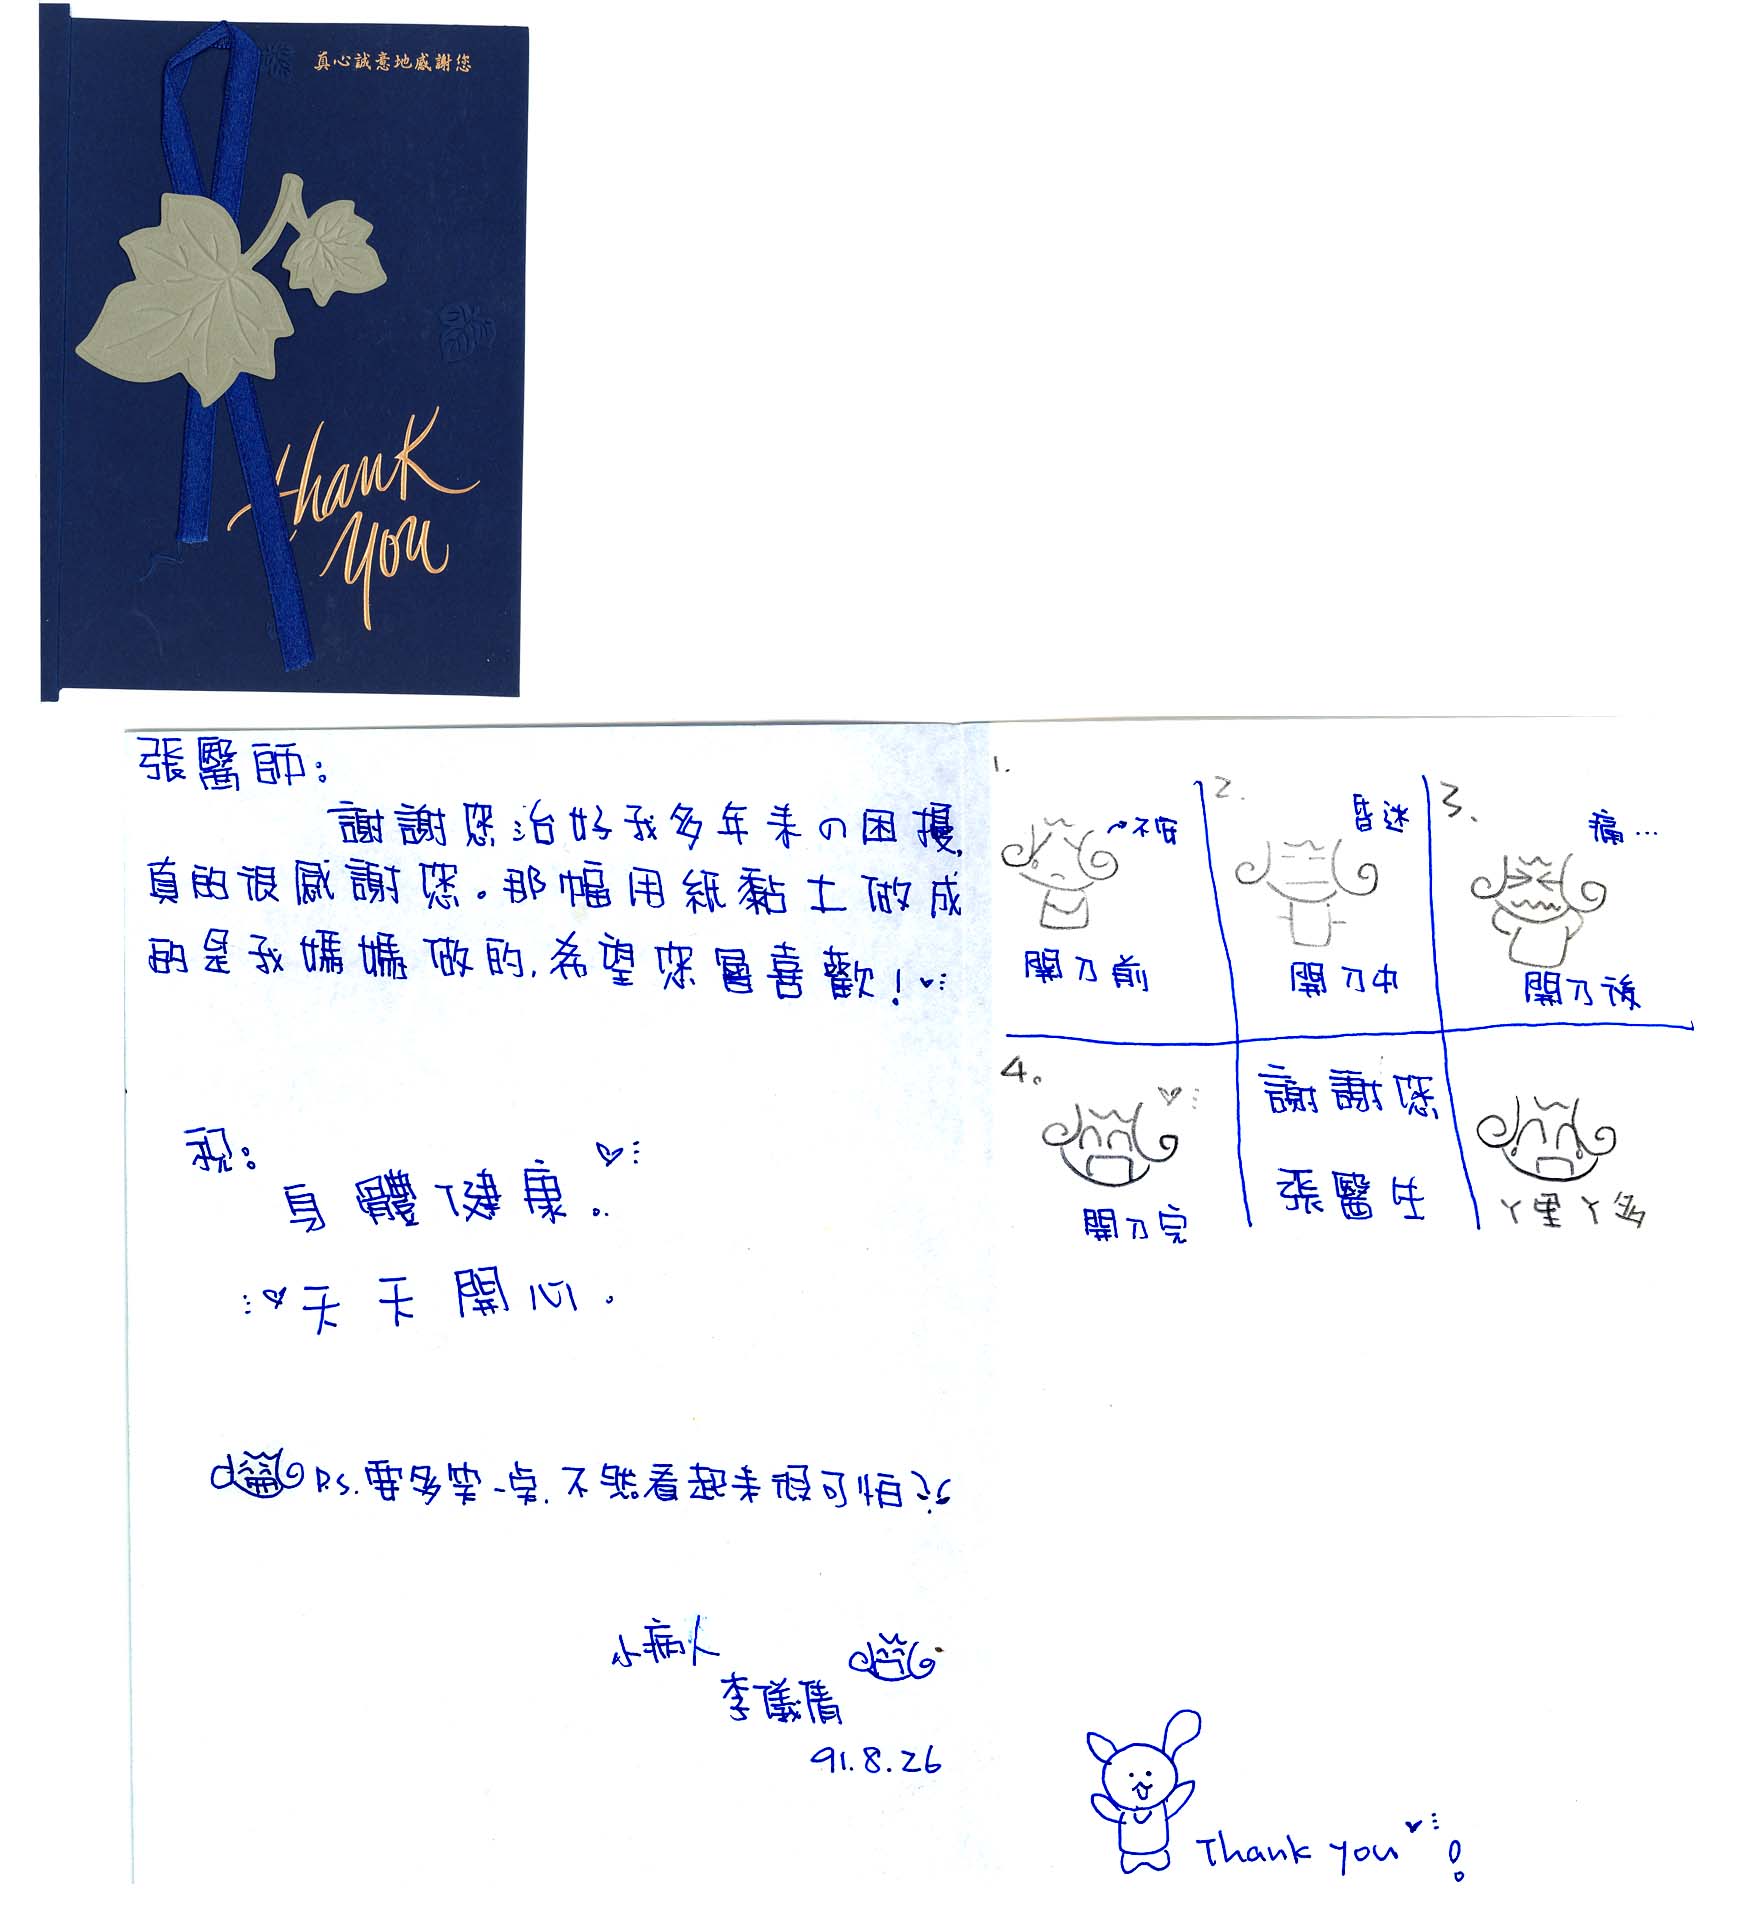 真心誠意地感謝您
thank
you
張醫師:
謝謝您治好我多年来の困擾,
真的很感謝您。那幅用紙黏土做成
的是我媽媽做的,希望您會喜歡!
祝:
身體健康..
天天開心.
P.S.要多笑一点.不然看起来很可怕
小病人
李儀倩
91.8.26
1.
不安
開刀前
2.
昏迷
開刀中
3.
痛...
開刀後
4.
開刀完
謝謝您
張醫生
ㄚ里ㄚ多
Thank you !